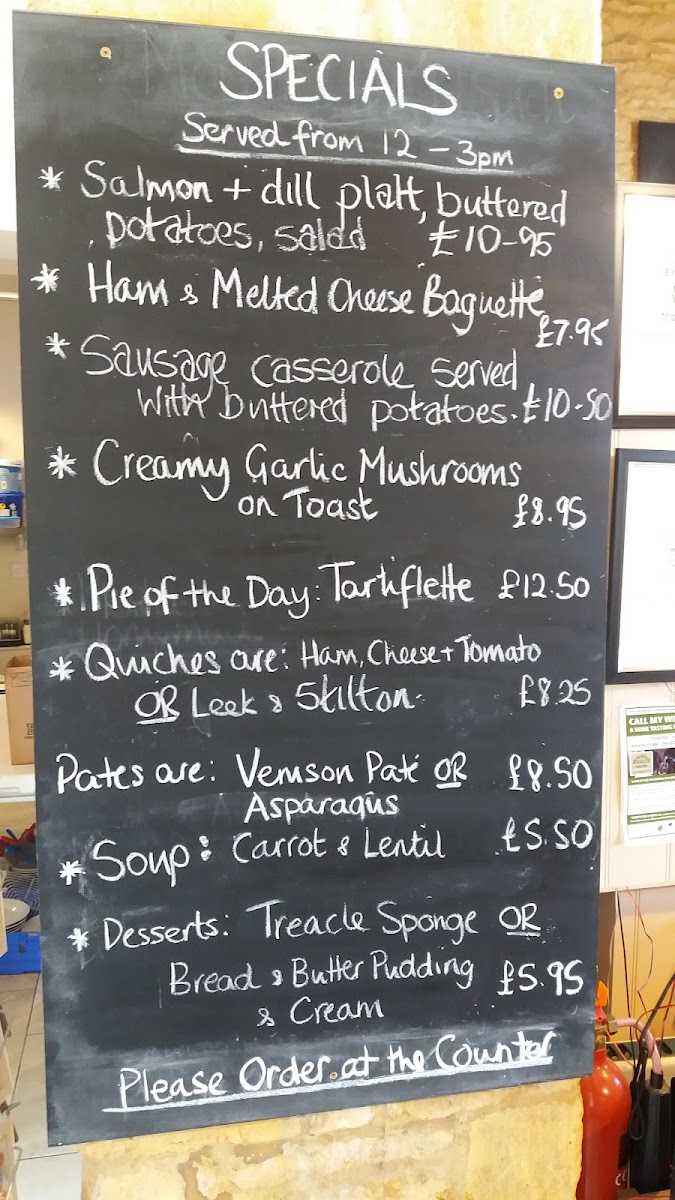 SPECIALS
Served from 12 - 3pm
* Salmon + dill platt, buttered
potatoes, salad £10-95
* Ham & Melted Cheese Baguette
£7.95
* Sausage casserole served
with buttered potatoes. £10-50
* Creamy Garlic Mushrooms
on Toast £8.95
* Pie of the Day: Tartiflette £12.50
* Quiches are: Ham, Cheese + Tomato
OR Leek & Stilton. £8.25
Pates are: Venison Paté OR £8.50
Asparagus
* Soup: Carrot & Lentil £5.50
* Desserts: Treacle Sponge OR
Bread & Butter Pudding £5.95
& Cream
Please Order at the Counter
CALL MY WI
A WINE TASTING